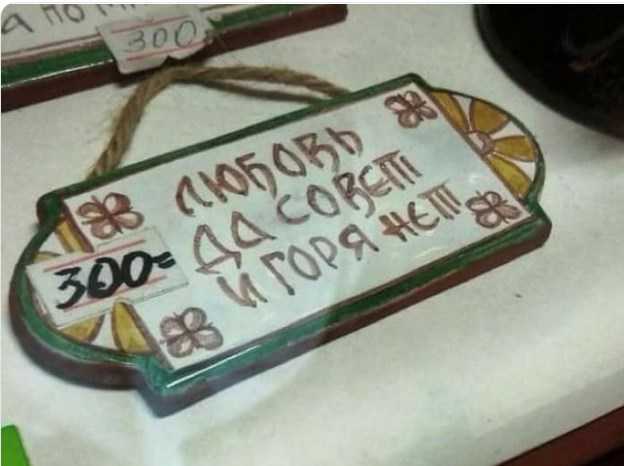 300
ЛЮБОВЬ
ДА СОВЕТ
И ГОРЯ НЕТ
300=